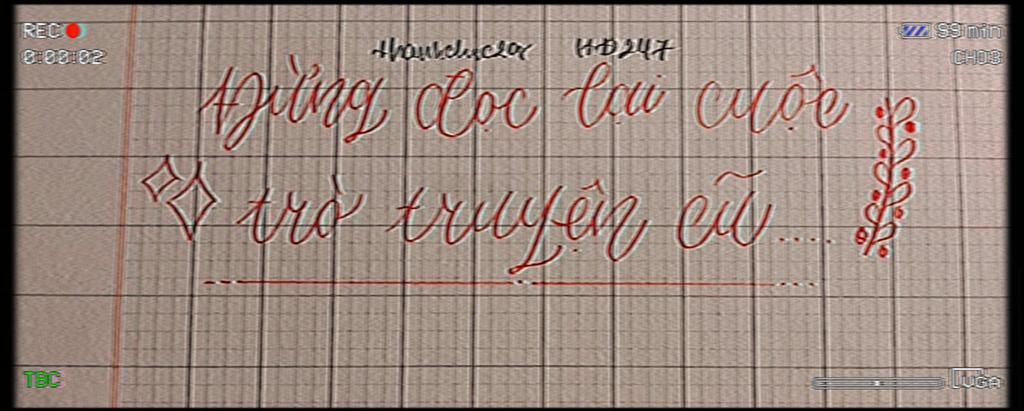 REC 99 min
0:00:02 CH03
HĐ247
Đừng đọc lại cuộc
trò truyện cũ....
TBC VGA